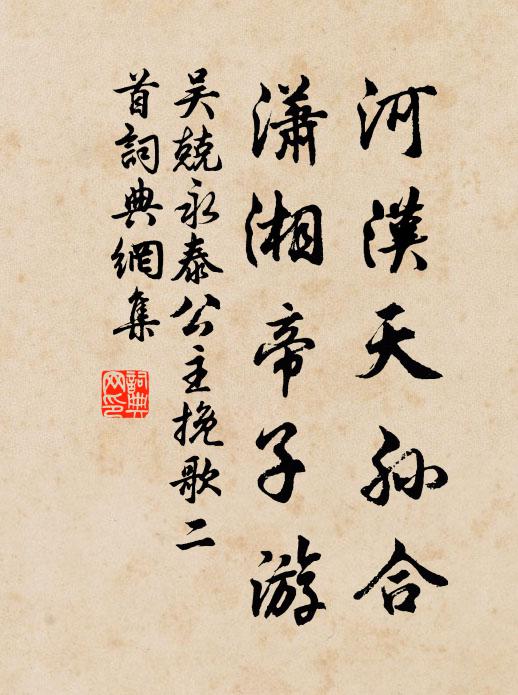 河漢天孙合
瀟湘帝子游
吴兢永泰公主挽歌二
首詞典網集
詞典网印